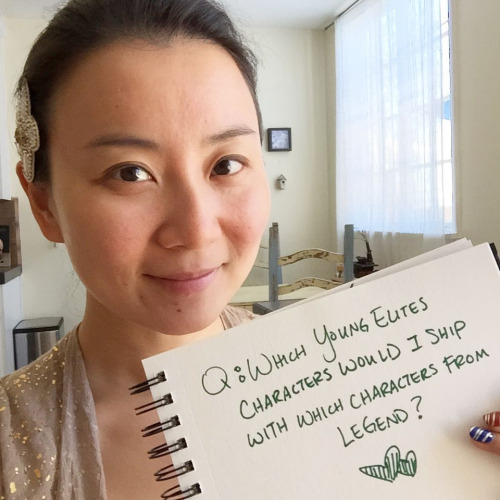 Q: WHICH YOUNG ELITES
CHARACTERS WOULD I SHIP
WITH WHICH CHARACTERS FROM
LEGEND?